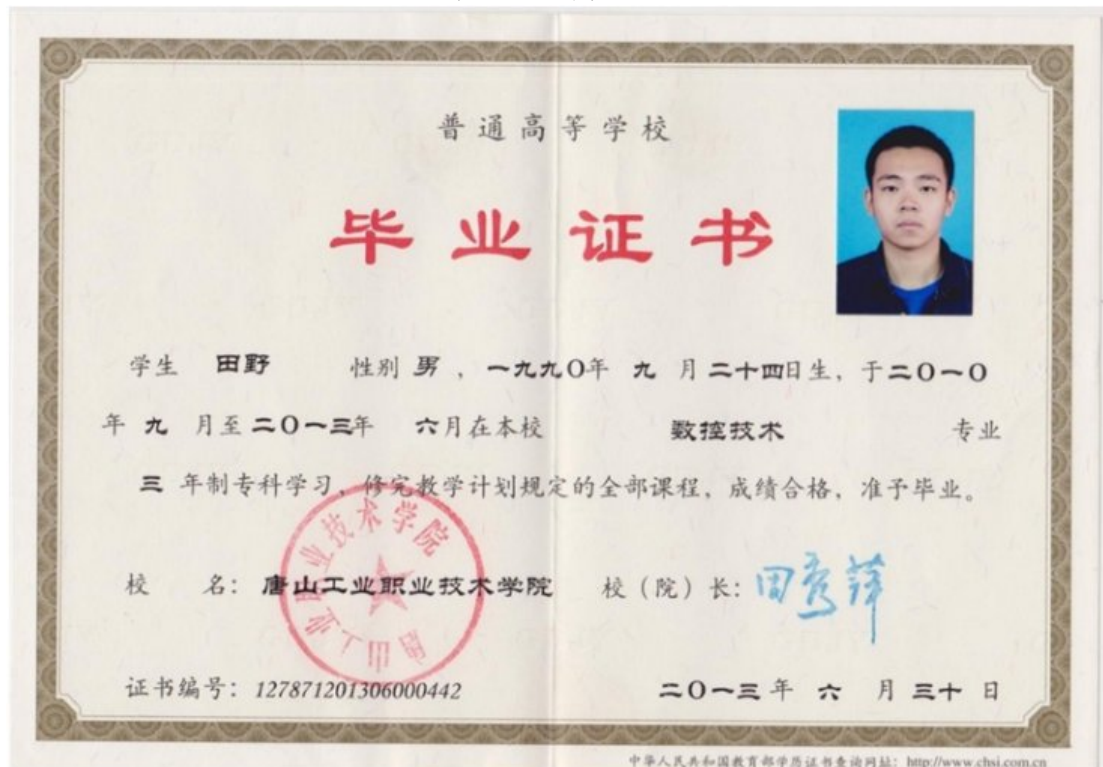 普通高等学校
毕业证书
学生 田野 性别 男 ，一九九〇年 九 月 二十四日生，于二〇一〇
年 九 月至 二〇一三年 六月在本校 数控技术 专业
三 年制专科学习，修完教学计划规定的全部课程，成绩合格，准予毕业。
校 名：唐山工业职业技术学院 校（院）长：田秀萍
唐山工业职业技术学院
证书编号：127871201306000442 二〇一三 年 六 月 三十 日
中华人民共和国教育部学历证书查询网址：http://www.chsi.com.cn